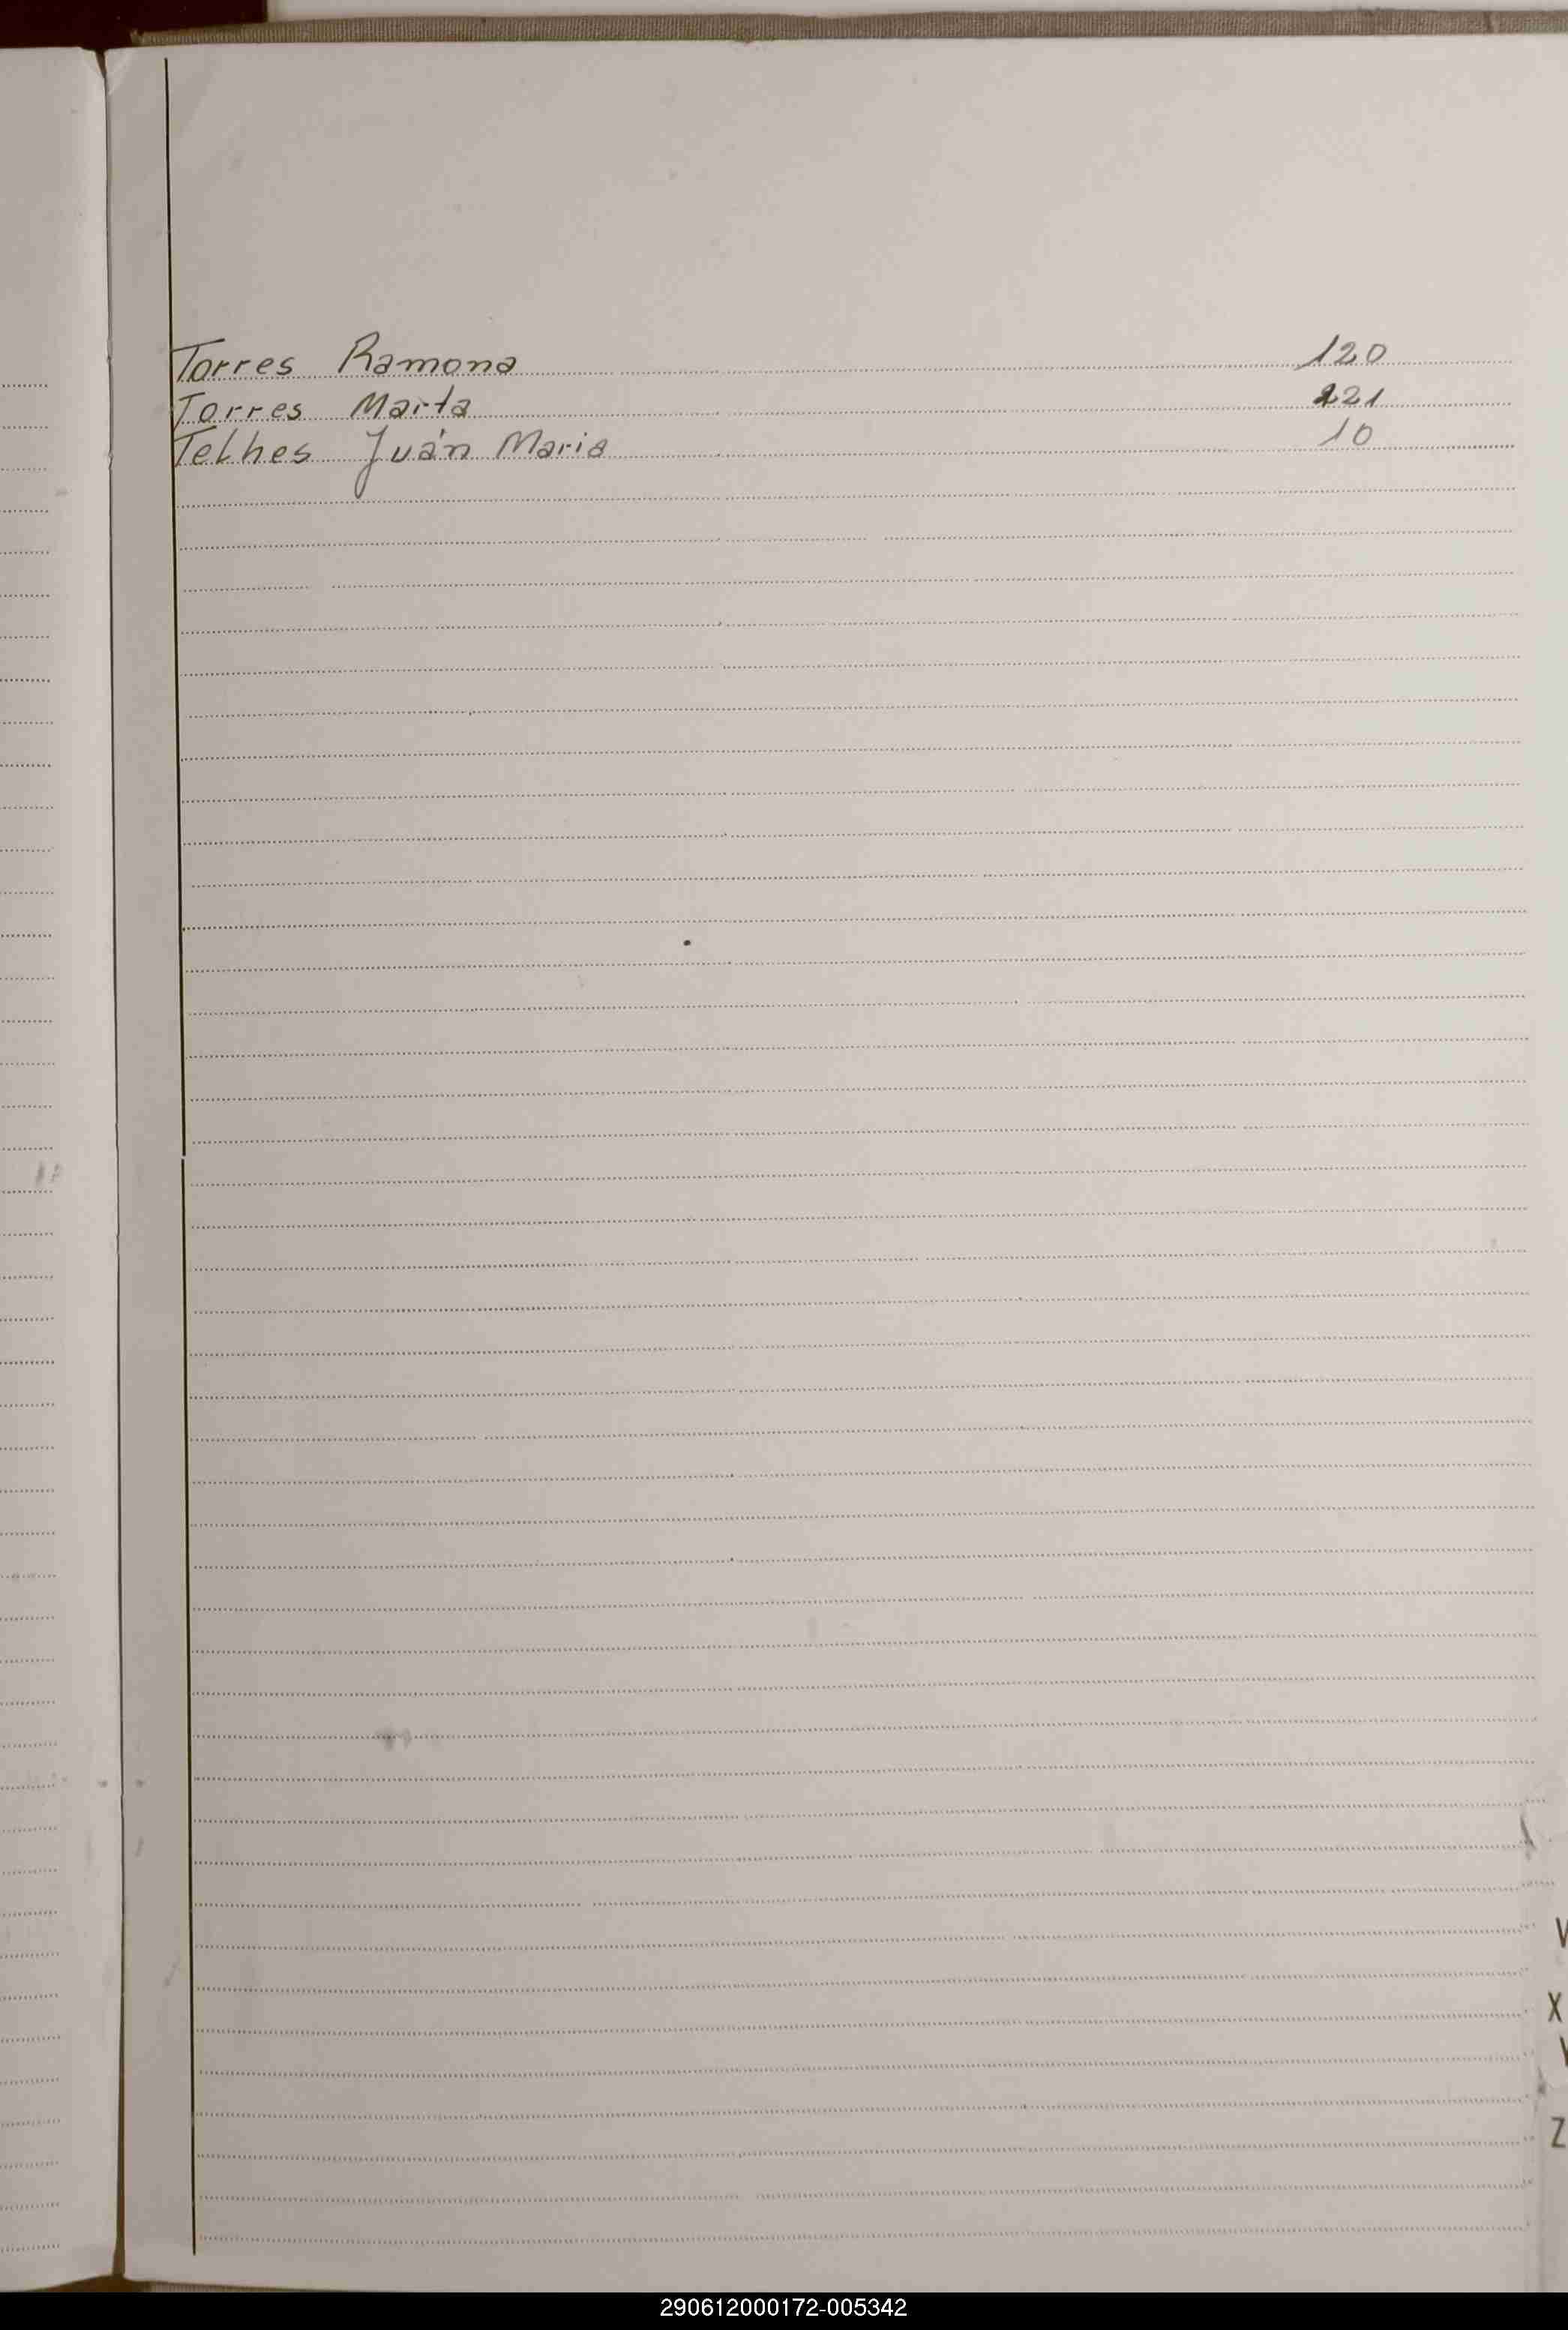 Torres Ramona 120
Torres Marta 121
Telhes Juán Maria 10
V
X
Z
290612000172-005342